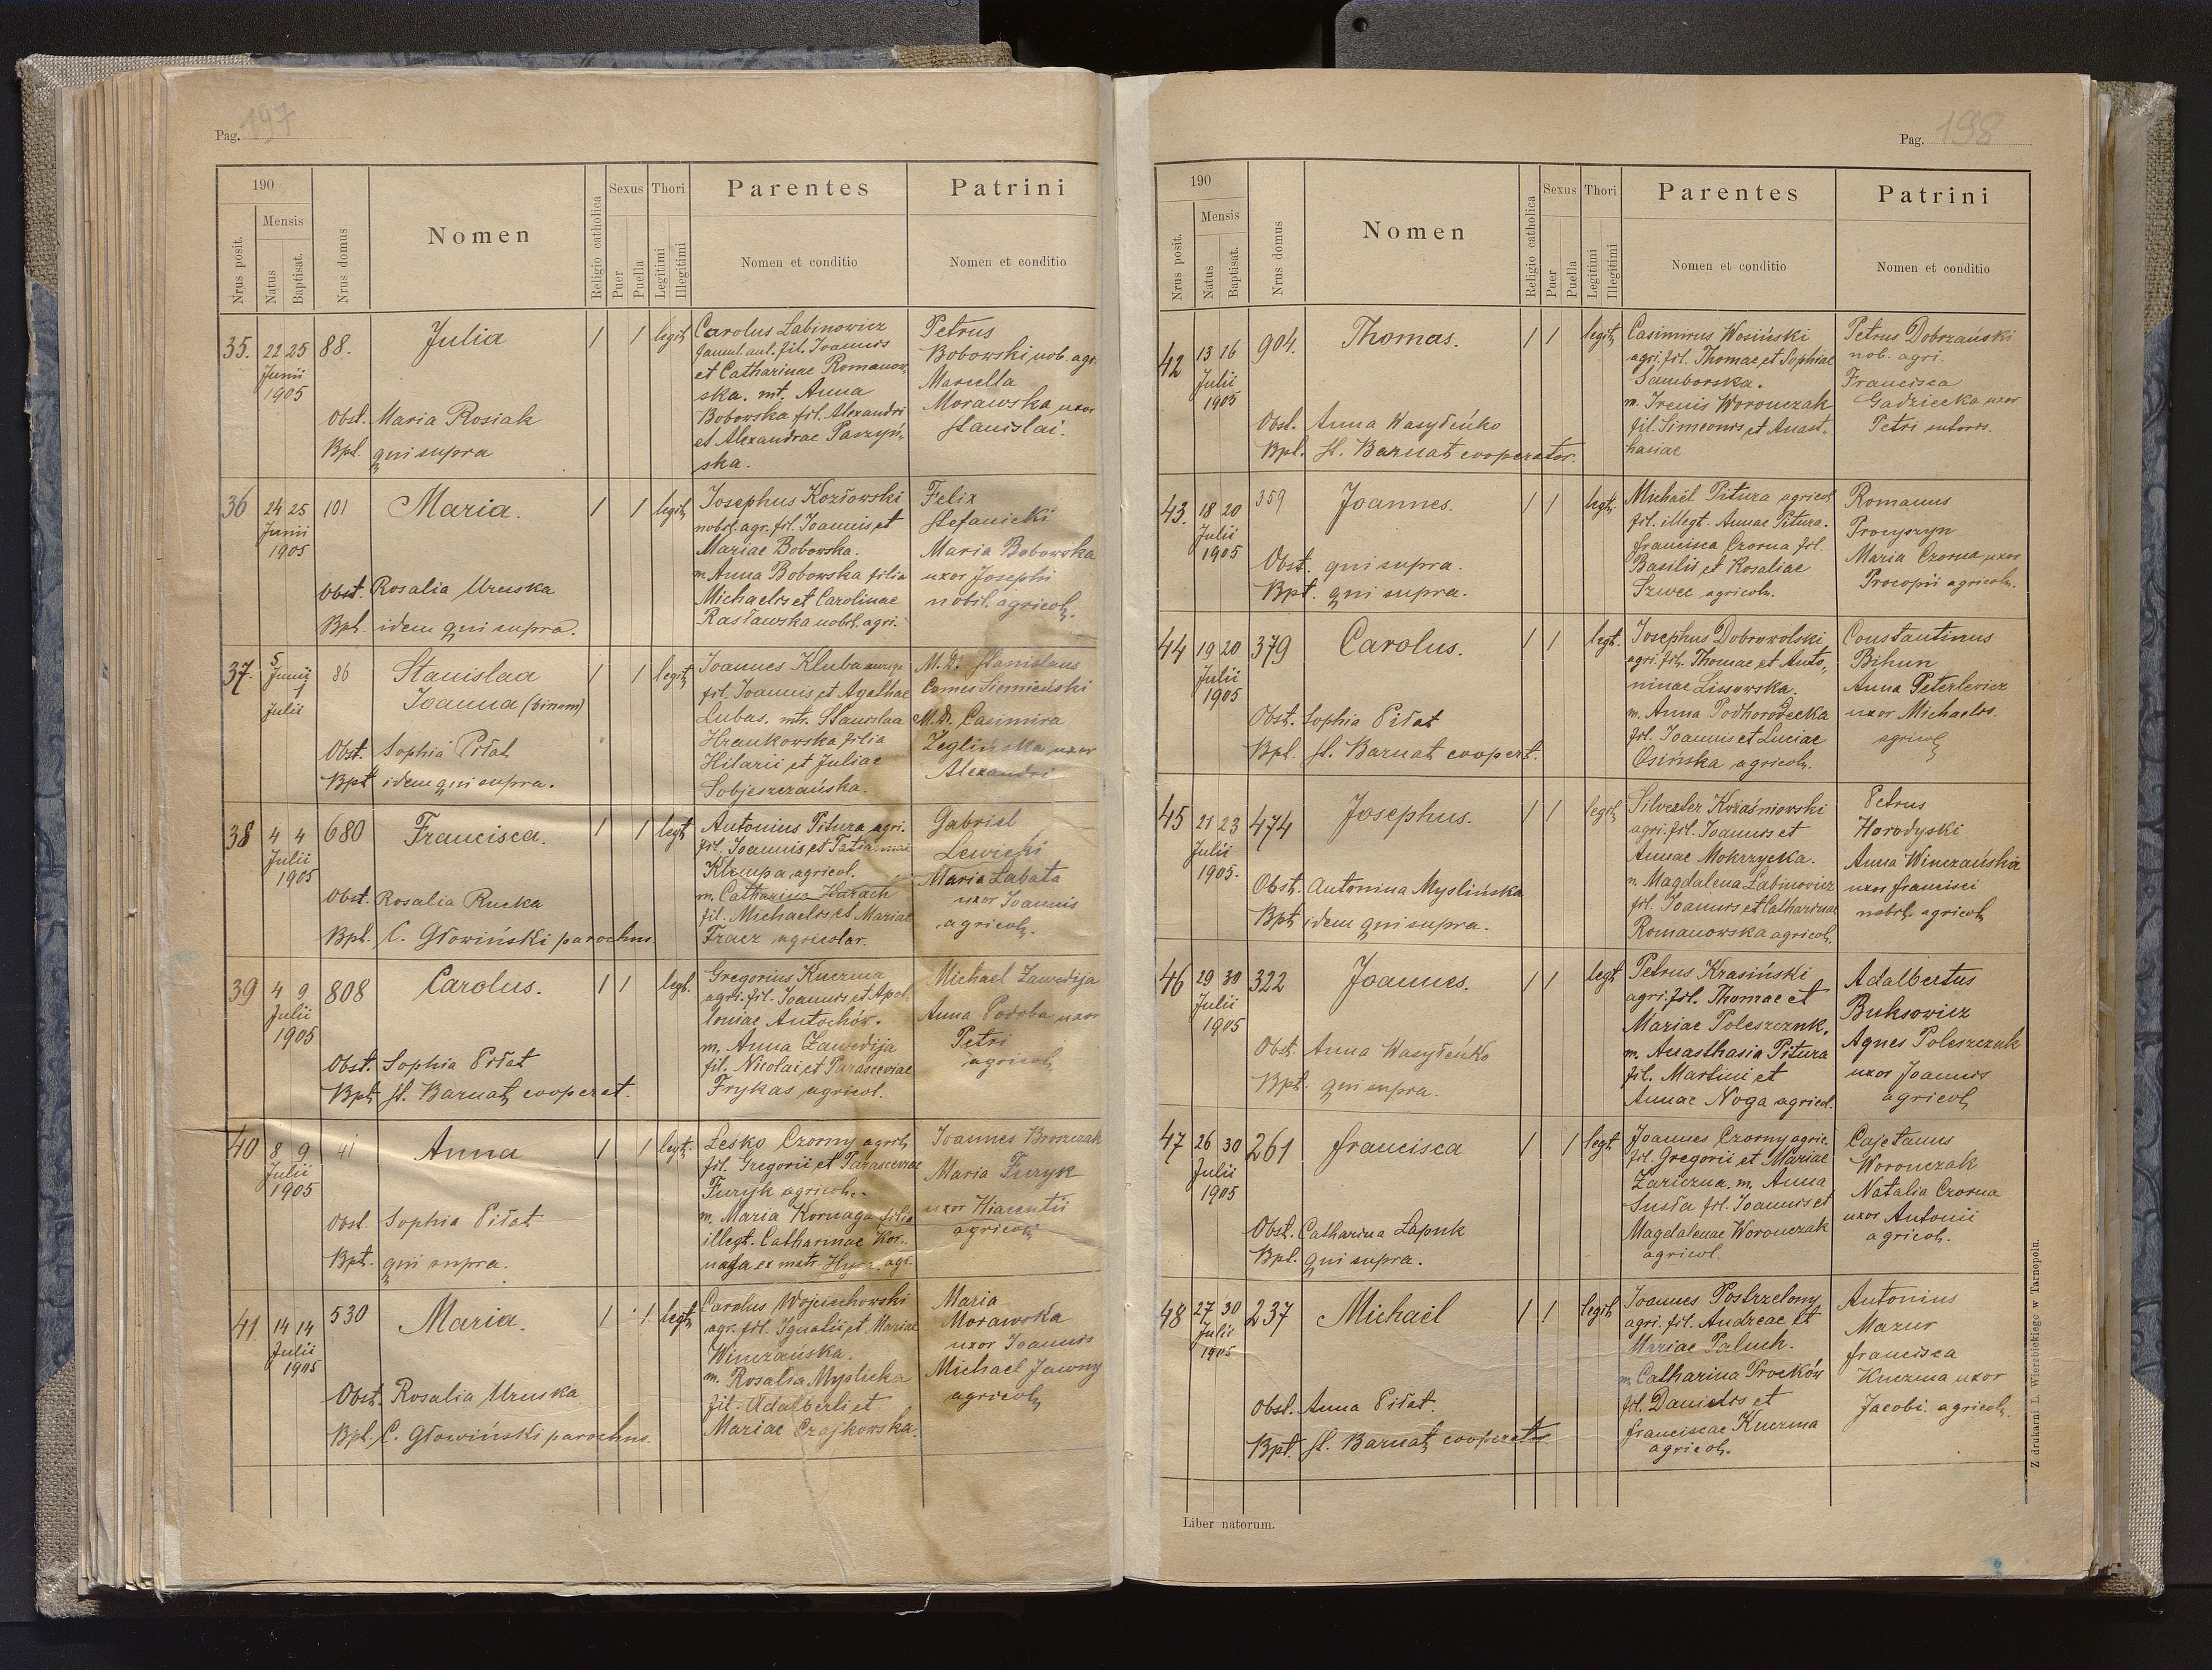 Pag. 197
190
Nrus posit.
Mensis
Natus
Baptisat.
Nrus domus
Nomen
Religio catholica
Sexus
Puer
Puella
Thori
Legitimi
Illegitimi
Parentes
Nomen et conditio
Patrini
Nomen et conditio
35. 22 25 88. Julia 1 1 legit
Junii
1905
Obst. Maria Rosiak
Bpt. qui supra
Carolus Łabinowicz
famul. aul. fil. Joannis
et Catharinae Romanow-
ska. mt. Anna
Bobowska fil. Alexandri
et Alexandrae Paszyń-
ska.
Petrus
Bobowski nob. agr.
Marcella
Morawska uxor
Stanislai.
36 24 25 101 Maria. 1 1 legit
Junii
1905
Obst. Rosalia Uruska
Bpt. idem qui supra.
Josephus Kozłowski
nobil. agr. fil. Joannis et
Mariae Bobowska.
m. Anna Bobowska filia
Michaelis et Carolinae
Rasławska nobil. agri.
Felix
Stefanicki
Maria Bobowska
uxor Josephi
nobil. agricol.
37. 5 86 Stanislaa 1 1 legit
Junii
1
Julii
Joanna (binom)
Obst. Sophia Piłat
Bpt idem qui supra.
Joannes Kluba auriga
fil. Joannis et Agathae
Lubas. mt. Stanislaa
Hrankowska filia
Hilarii et Juliae
Sobjeszczańska.
M. D. Stanislaus
Comes Siemieński
M. D. Casimira
Zeglińska uxor
Alexandri
38 4 4 680 Francisca. 1 1 legt
Julii
1905
Obst. Rosalia Rucka
Bpt. C. Głowiński parochus
Antonius Pitura agri.
fil. Joannis et Tatiannae
Klempa, agricol.
m. Catharina Harach
fil. Michaelis et Mariae
Tracz agricolar.
Gabriel
Lewicki
Maria Labata
uxor Joannis
agricol.
39 4 9 808 Carolus. 1 1 legt.
Julii
1905
Obst. Sophia Piłat
Bpt. St. Barnat cooperat.
Gregorius Kuczma
agri. fil. Joannis et Apol-
loniae Antochów.
m. Anna Zawedija
fil. Nicolai et Parasceviae
Frykas agricol.
Michael Zawedija
Anna Podoba uxor
Petri
agricol
40 8 9 41 Anna 1 1 legt.
Julii
1905
Obst. Sophia Piłat
Bpt. qui supra.
Lesko Czorny agril
fil. Gregorii et Parasceviae
Furyk agricol.
m. Maria Kornaga filia
illegt. Catharinae Kor-
naga ex matr. agr.
Joannes Broszczak
Maria Furyk
uxor Hiacentii
agricol
41 14 14 530 Maria. 1 1 legt
Julii
1905
Obst. Rosalia Uruska
Bpt. C. Głowiński parochus.
Carolus Wojciechowski
agr. fil. Ignatii et Mariae
Winczańska.
m. Rosalia Myslicka
fil. Adalberti et
Mariae Czajkowska.
Maria
Morawska
uxor Joannis
Michael Jawny
agricol
Pag. 198
190
Nrus posit.
Mensis
Natus
Baptisat.
Nrus domus
Nomen
Religio catholica
Sexus
Puer
Puella
Thori
Legitimi
Illegitimi
Parentes
Nomen et conditio
Patrini
Nomen et conditio
42 13 16 904. Thomas. 1 1 legit
Julii
1905
Obst. Anna Wasyleńko
Bpt. St. Barnat cooperator.
Casimirus Wosiński
agri. fil. Thomae et Sophiae
Samborska.
m. Irenis Woronczak
fil. Simeonis et Anast-
hasiae
Petrus Dobrzański
nob. agri.
Francisca
Gadziecka uxor
Petri sutoris.
43. 18 20 359 Joannes. 1 1 legt.
Julii
1905
Obst. qui supra.
Bpt. qui supra.
Michael Pitura agricol
fil. illegt. Annae Pitura.
Francisca Czorna fil.
Basilii et Rosaliae
Szwec agricol.
Romanus
Pronpzyn
Maria Czorna uxor
Procopii agricol.
44 19 20 379 Carolus. 1 1 legt.
Julii
1905
Obst. Sophia Piłat
Bpt. St. Barnat coopert.
Josephus Dobrowolski
agri. fil. Thomae et Anto-
ninae Lissowska.
m. Anna Podhorodecka
fil. Joannis et Luciae
Osińska agricol.
Constantinus
Bihun
Anna Peterlevicz
uxor Michaelis.
agricol
45 21 23 474 Josephus. 1 1 legit
Julii
1905.
Obst. Antonina Myslińska
Bpt idem qui supra.
Silvester Kwaśniowski
agri. fil. Joannis et
Annae Mokrzycka.
m. Magdalena Łabinowicz
fil. Joannis et Catharinae
Romanowska agricol.
Petrus
Horodyski
Anna Winczańska
uxor Francisci
nobil. agricol
46 29 30 322 Joannes. 1 1 legt
Julii
1905
Obst. Anna Wasyleńko
Bpt. qui supra.
Petrus Krasiński
agri. fil. Thomae et
Mariae Poleszczuk.
m. Anasthasia Pitura
fil. Martini et
Annae Noga agricol.
Adalbertus
Buksowicz
Agnes Poleszczuk
uxor Joannis
agricol
47 26 30 261 Francisca 1 1 legt
Julii
1905
Obst. Catharina Lapuk
Bpt. qui supra.
Joannes Czorny agric.
fil. Gregorii et Mariae
Zariczna. m. Anna
Susła fil. Joannis et
Magdalenae Woronczak
agricol.
Cajetanus
Woronczak
Natalia Czorna
uxor Antonii
agricol.
48 27 30 237 Michael 1 1 legit
Julii
1905
Obst. Anna Piłat.
Bpt. St. Barnat cooperat
Joannes Postrzelony
agri. fil. Andreae et
Mariae Paluch.
m. Catharina Proćków
fil. Danielis et
Franciscae Kuczma
agricol.
Antonius
Mazur
Francisca
Kuczma uxor
Jacobi. agricol.
Liber natorum.
Z drukarni L. Wierzbickiego w Tarnopolu.